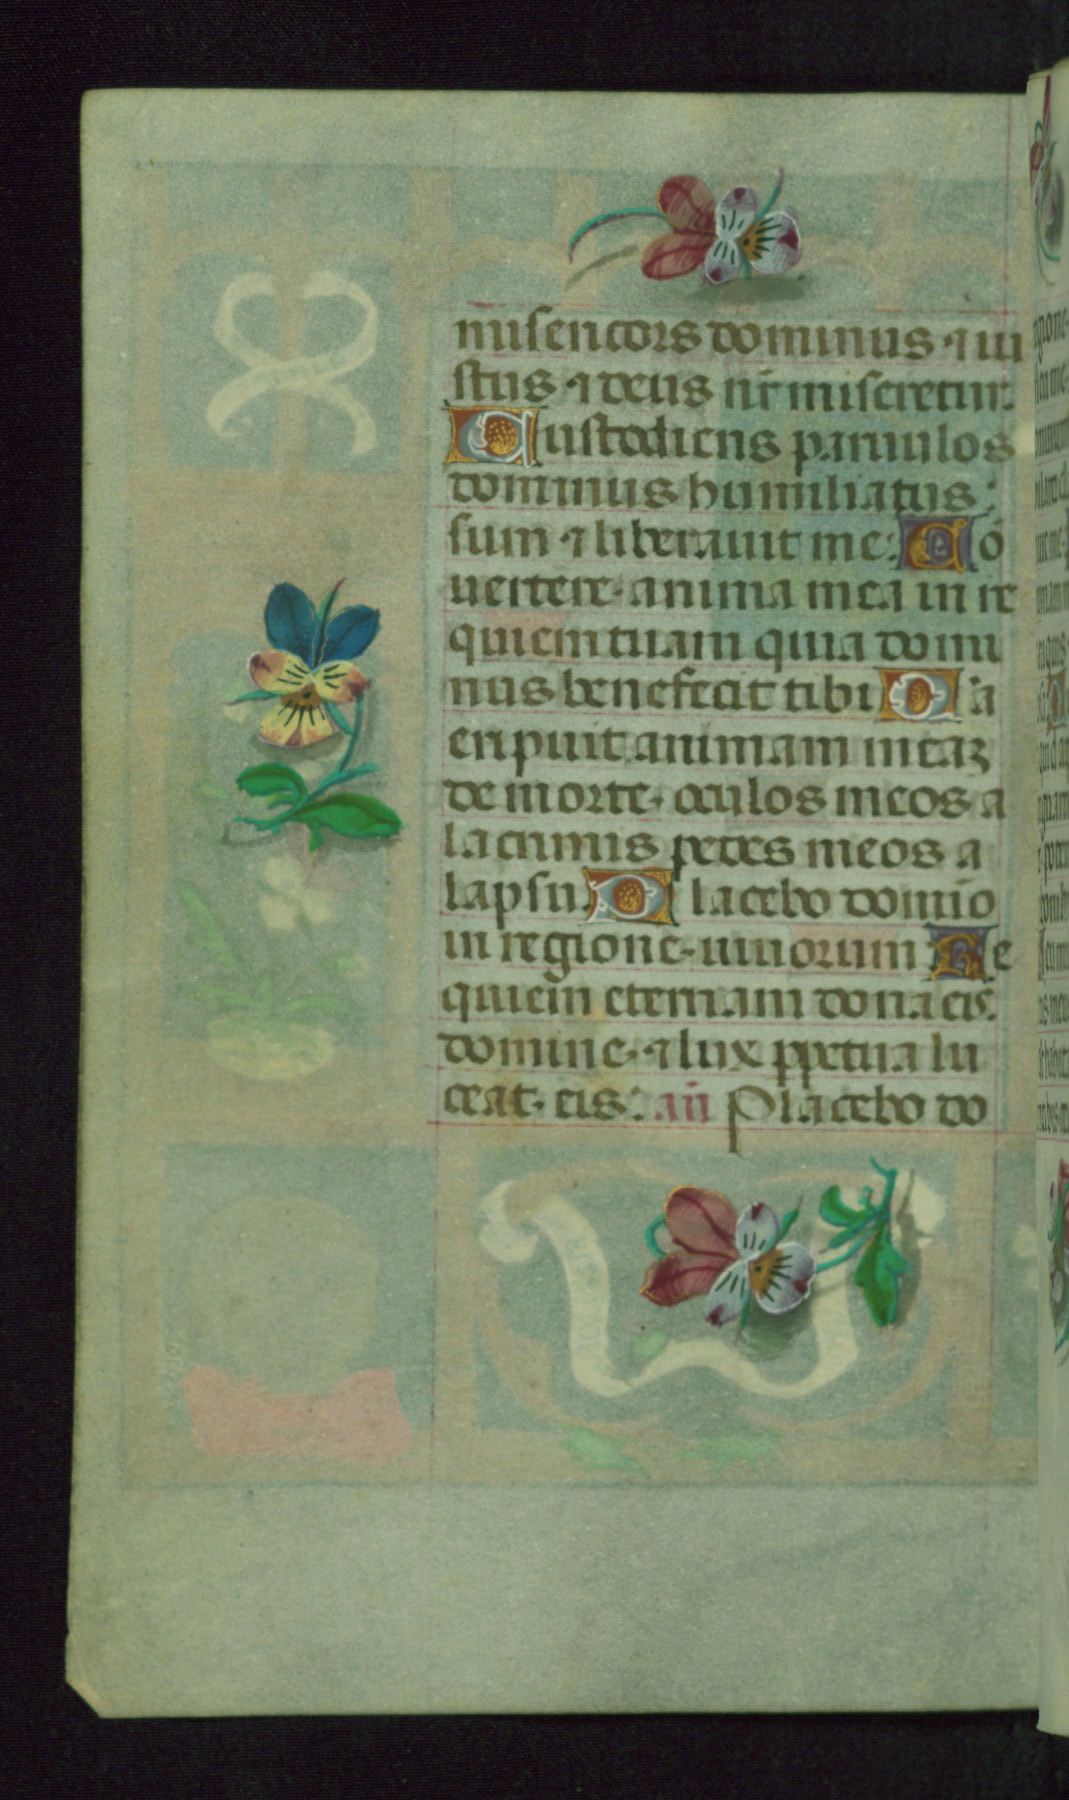 misericors dominus ⁊ iu
stus ⁊ deus nr̄ miseretur.
Custodiens paruulos
dominus humiliatus
sum ⁊ liberauit me: Cō
uertere anima mea in re
quiem tuam quia domi
nus benefecit tibi Q̄a
eripuit animam meaꝫ
de morte oculos meos a
lacrimis pedes meos a
lapsu. Placebo domīo
in regione uiuorum Re
quiem eternam dona eis.
domine ⁊ lux ꝑpetua lu
ceat eis: an̄ Placebo do